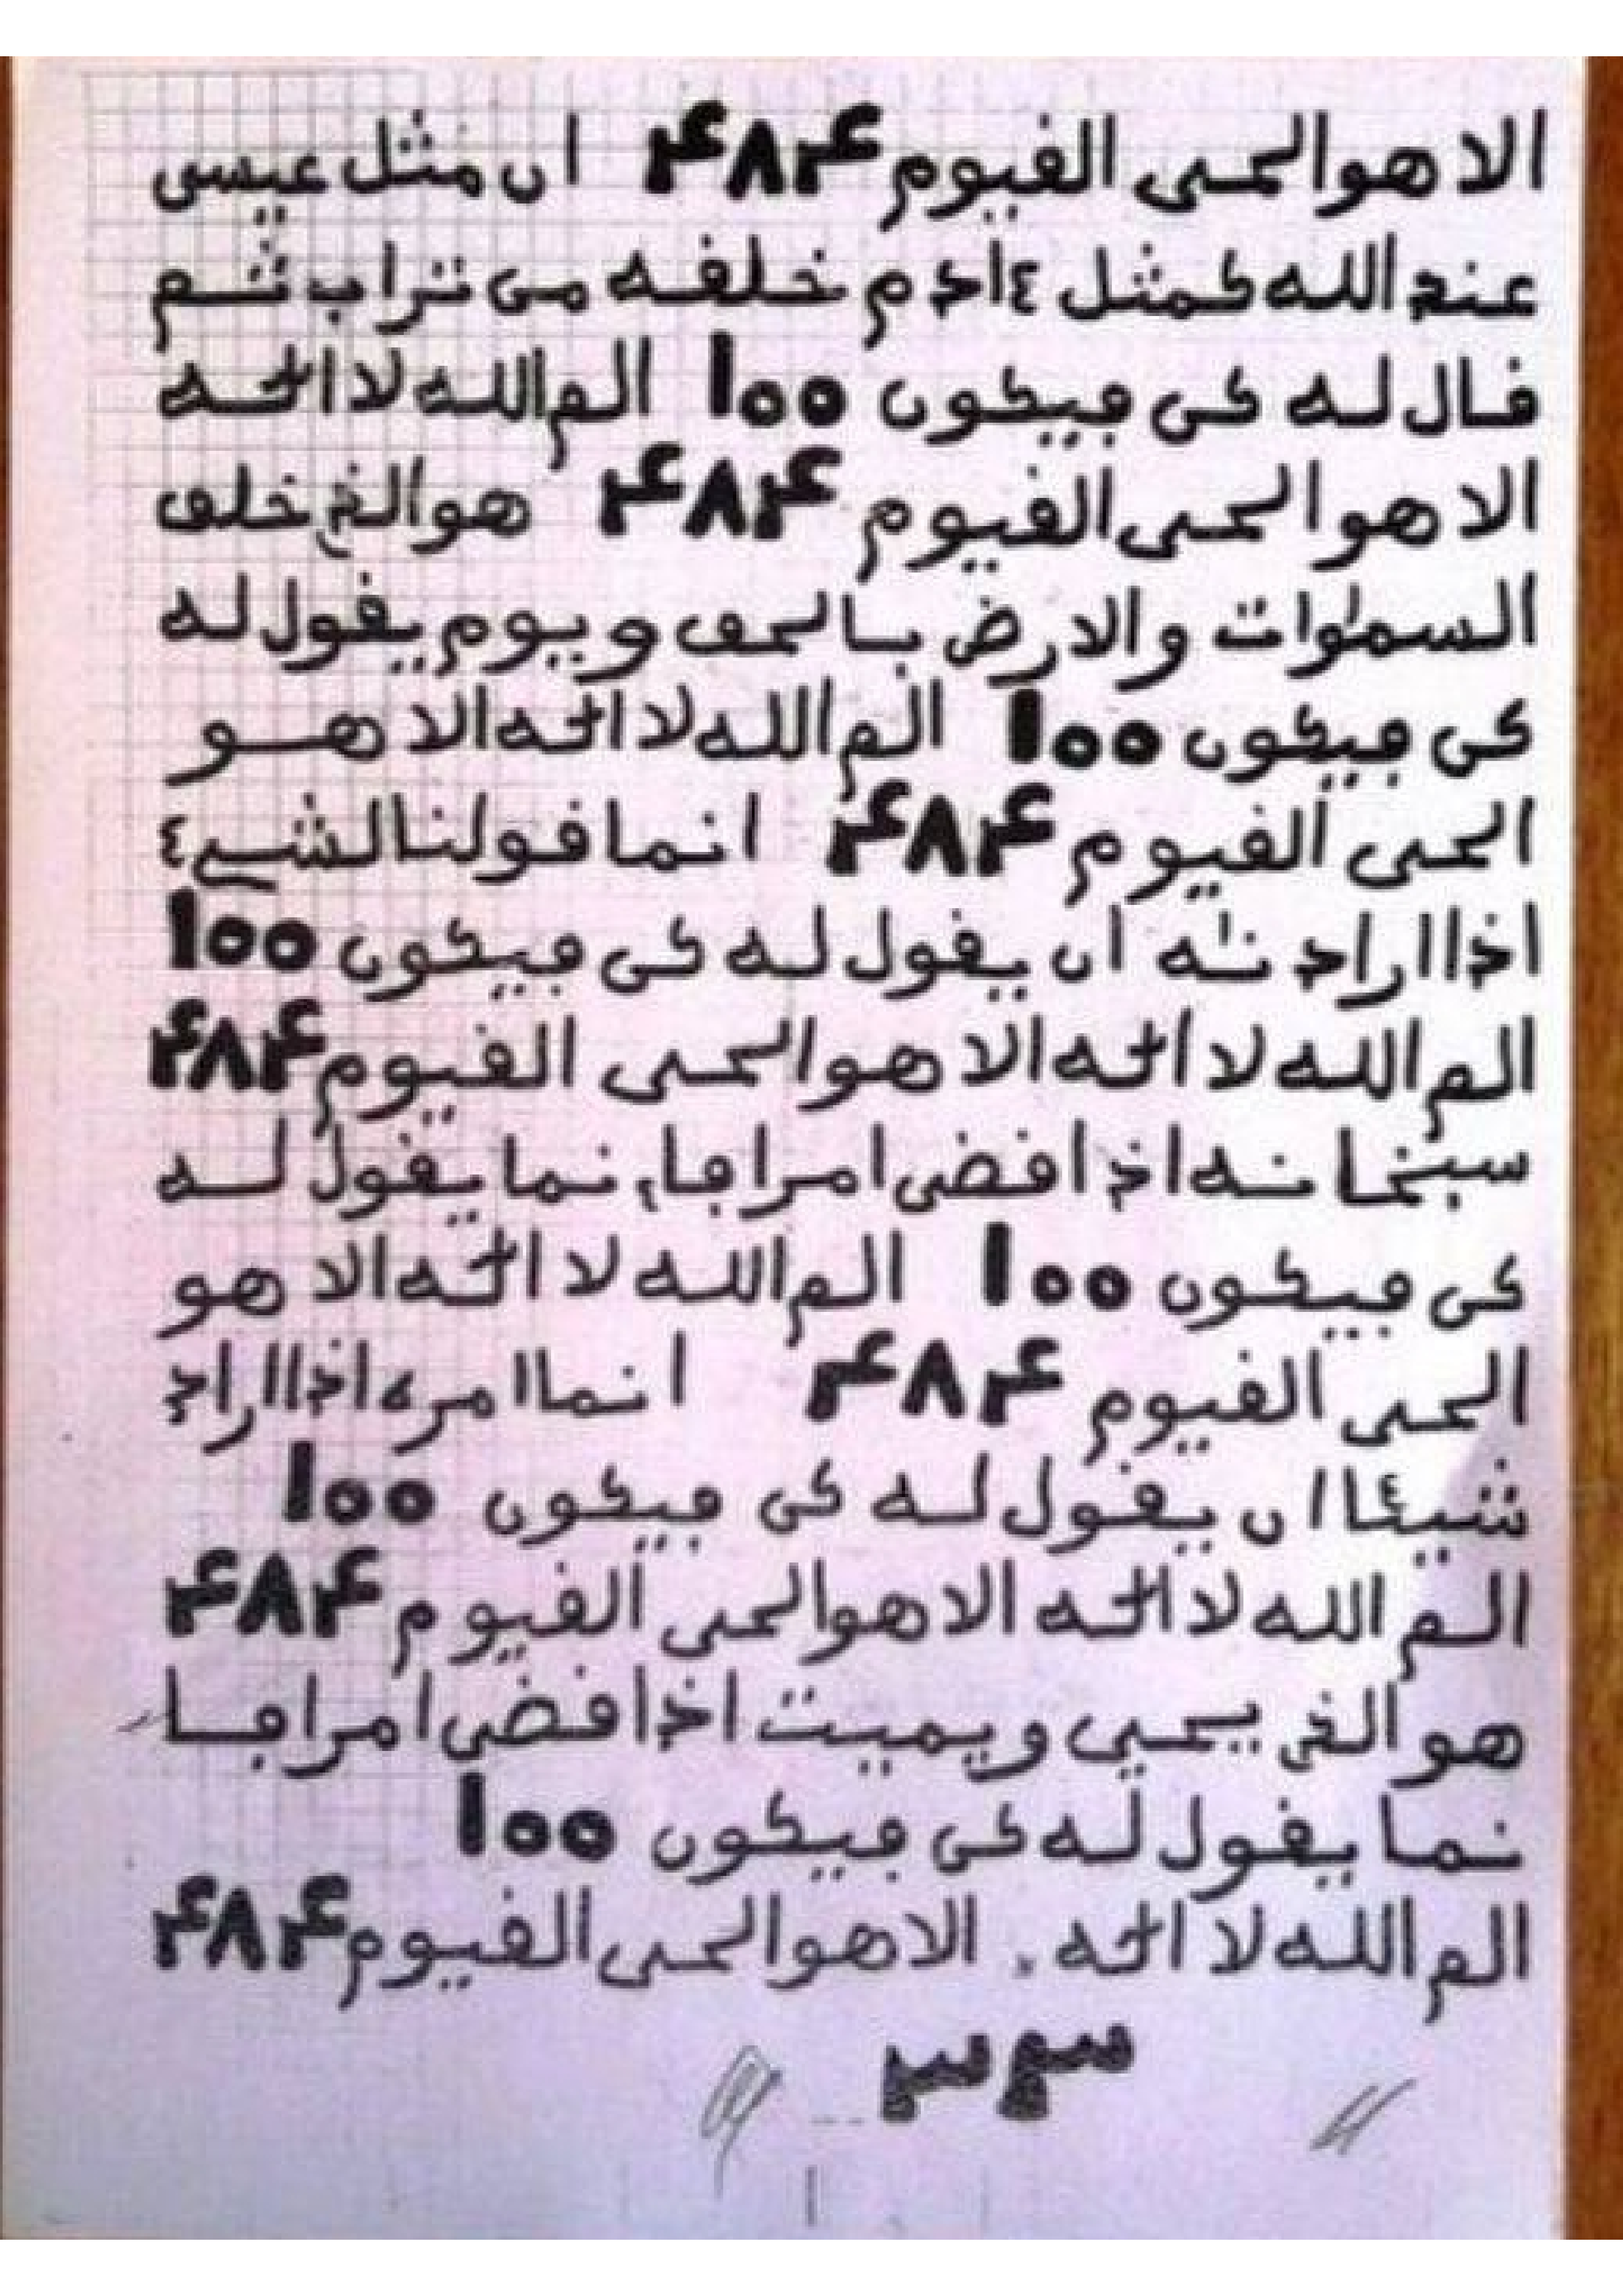 الا هو الحي الفيوم ۴۸۴ ان مثل عيسى
عند الله كمثل ءادم خلفه من تراب ثم
فال له كن ڢيكون 100 الم الله لا اله
الا هو الحي الفيوم ۴۸۴ هو الذي خلف
السموٰات والارض بالحف ويوم يفول له
كن ڢيكون 100 الم الله لا اله الا هو
الحي الفيوم ۴۸۴ انما فولنا لشيء
اذا اراد نٰه ان يفول له كن ڢيكون 100
الم الله لا اله الا هو الحي الفيوم ۴۸۴
سبحٰانه اذا فضى امرا ڢا نما يفول له
كن ڢيكون 100 الم الله لا اله الا هو
الحي الفيوم ۴۸۴ انما امره اذا اراد
شيئا ان يفول له كن ڢيكون 100
الم الله لا اله الا هو الحي الفيوم ۴۸۴
هو الذي يحيي ويميت اذا فضى امرا ڢا
نما يفول له كن ڢيكون 100
الم الله لا اله الا هو الحي الفيوم ۴۸۴